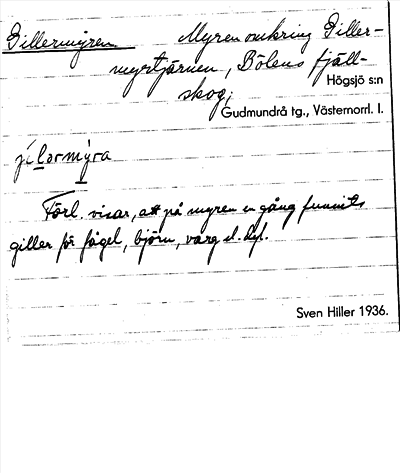 Gillermyren Myren omkring Giller-
myrtjärnen, Bölens fjäll-
skog;
Högsjö s:n
Gudmundrå tg., Västernorrl. l.
jílərmy̍ra
Förl. visar, att på myren en gång funnits
giller för fågel, björn, varg el. dyl.
Sven Hiller 1936.